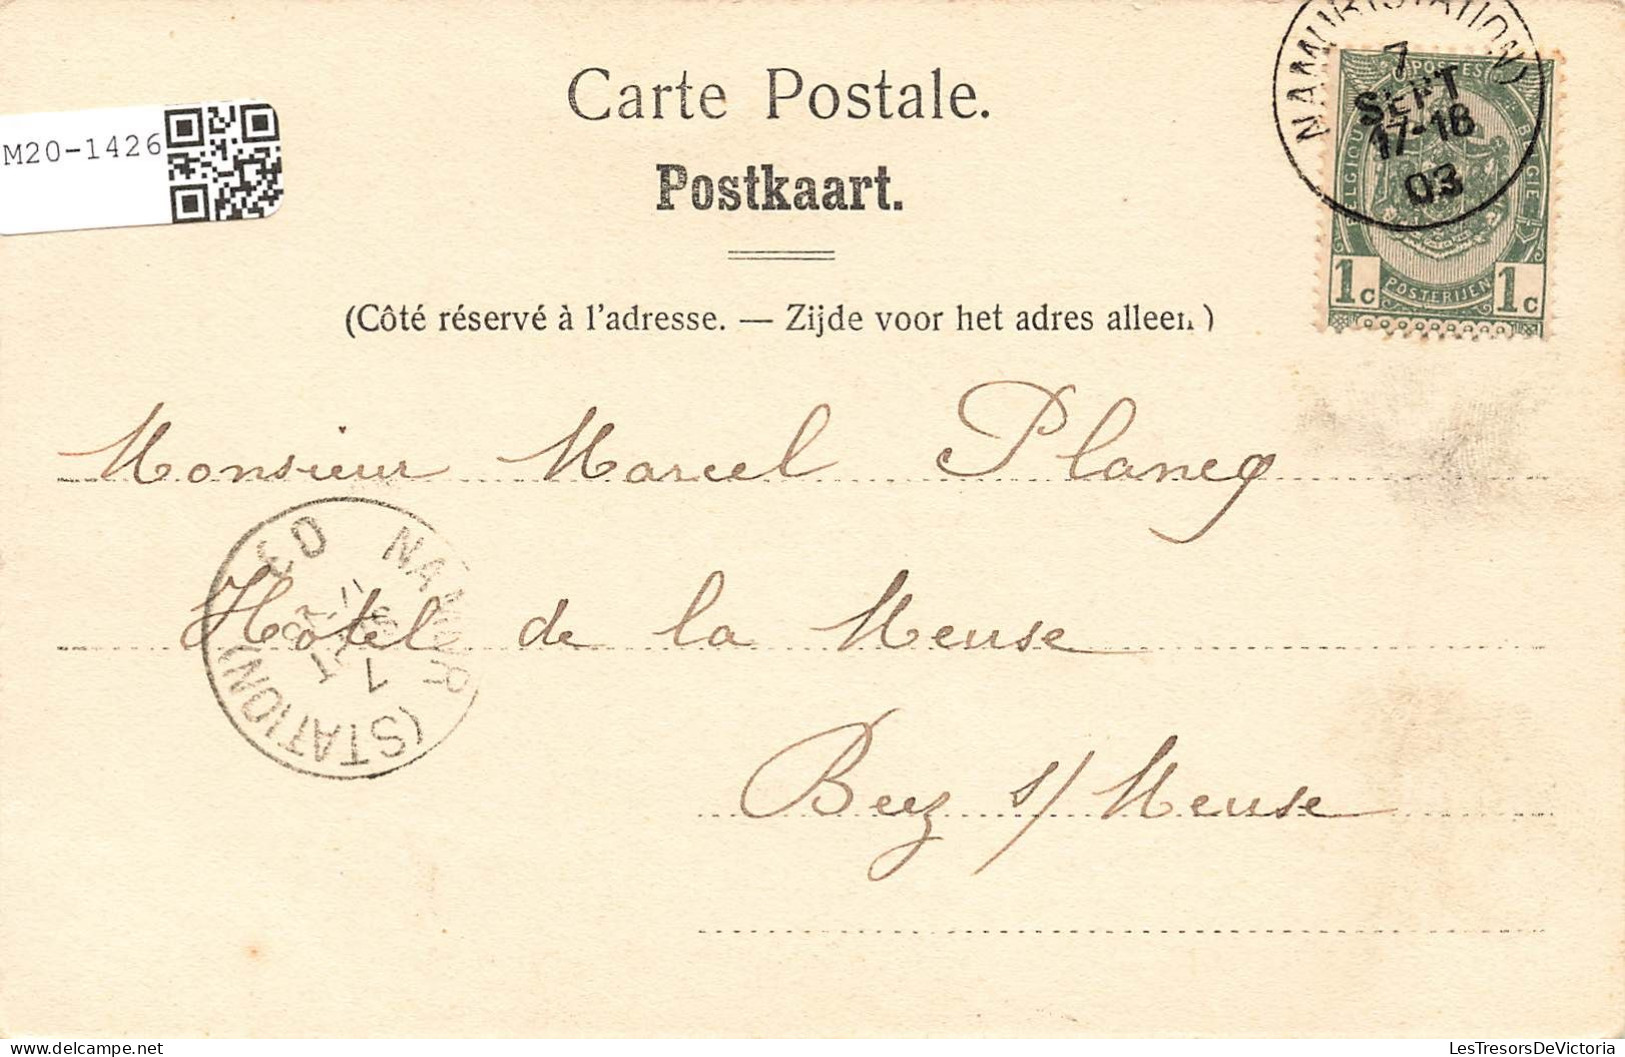 M20-1426
Carte Postale.
Postkaart.
(Côté réservé à l'adresse. — Zijde voor het adres alleen.)
NAMUR (STATION)
7
SEPT
17-18
03
POSTES
BELGIQUE
BELGIE
1c
POSTERIJEN
1c
Monsieur Marcel Plancq
Hôtel de la Meuse
Beez s/Meuse
NAMUR (STATION)
LesTresorsDeVictoria